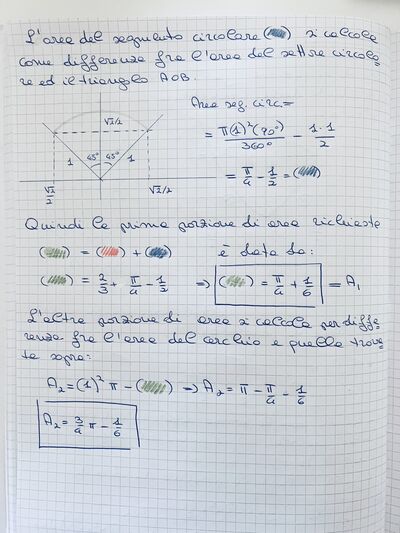 L'area del segmento circolare ( ) si calcola
come differenza fra l'area del settore circola
re ed il triangolo AOB.
Area seg. circ. =
√2/2
= π(1)²(90°)/360° - 1·1/2
1 45° 45° 1
= π/4 - 1/2 = ( )
√2/2 √2/2
Quindi la prima porzione di area richiesta
( ) = ( ) + ( ) è data da:
( ) = 2/3 + π/4 - 1/2 ⇒ ( ) = π/4 + 1/6 = A₁
L'altra porzione di area si calcola per diffe
renza fra l'area del cerchio e quella trova
ta sopra:
A₂ = (1)² π - ( ) ⇒ A₂ = π - π/4 - 1/6
A₂ = 3/4 π - 1/6